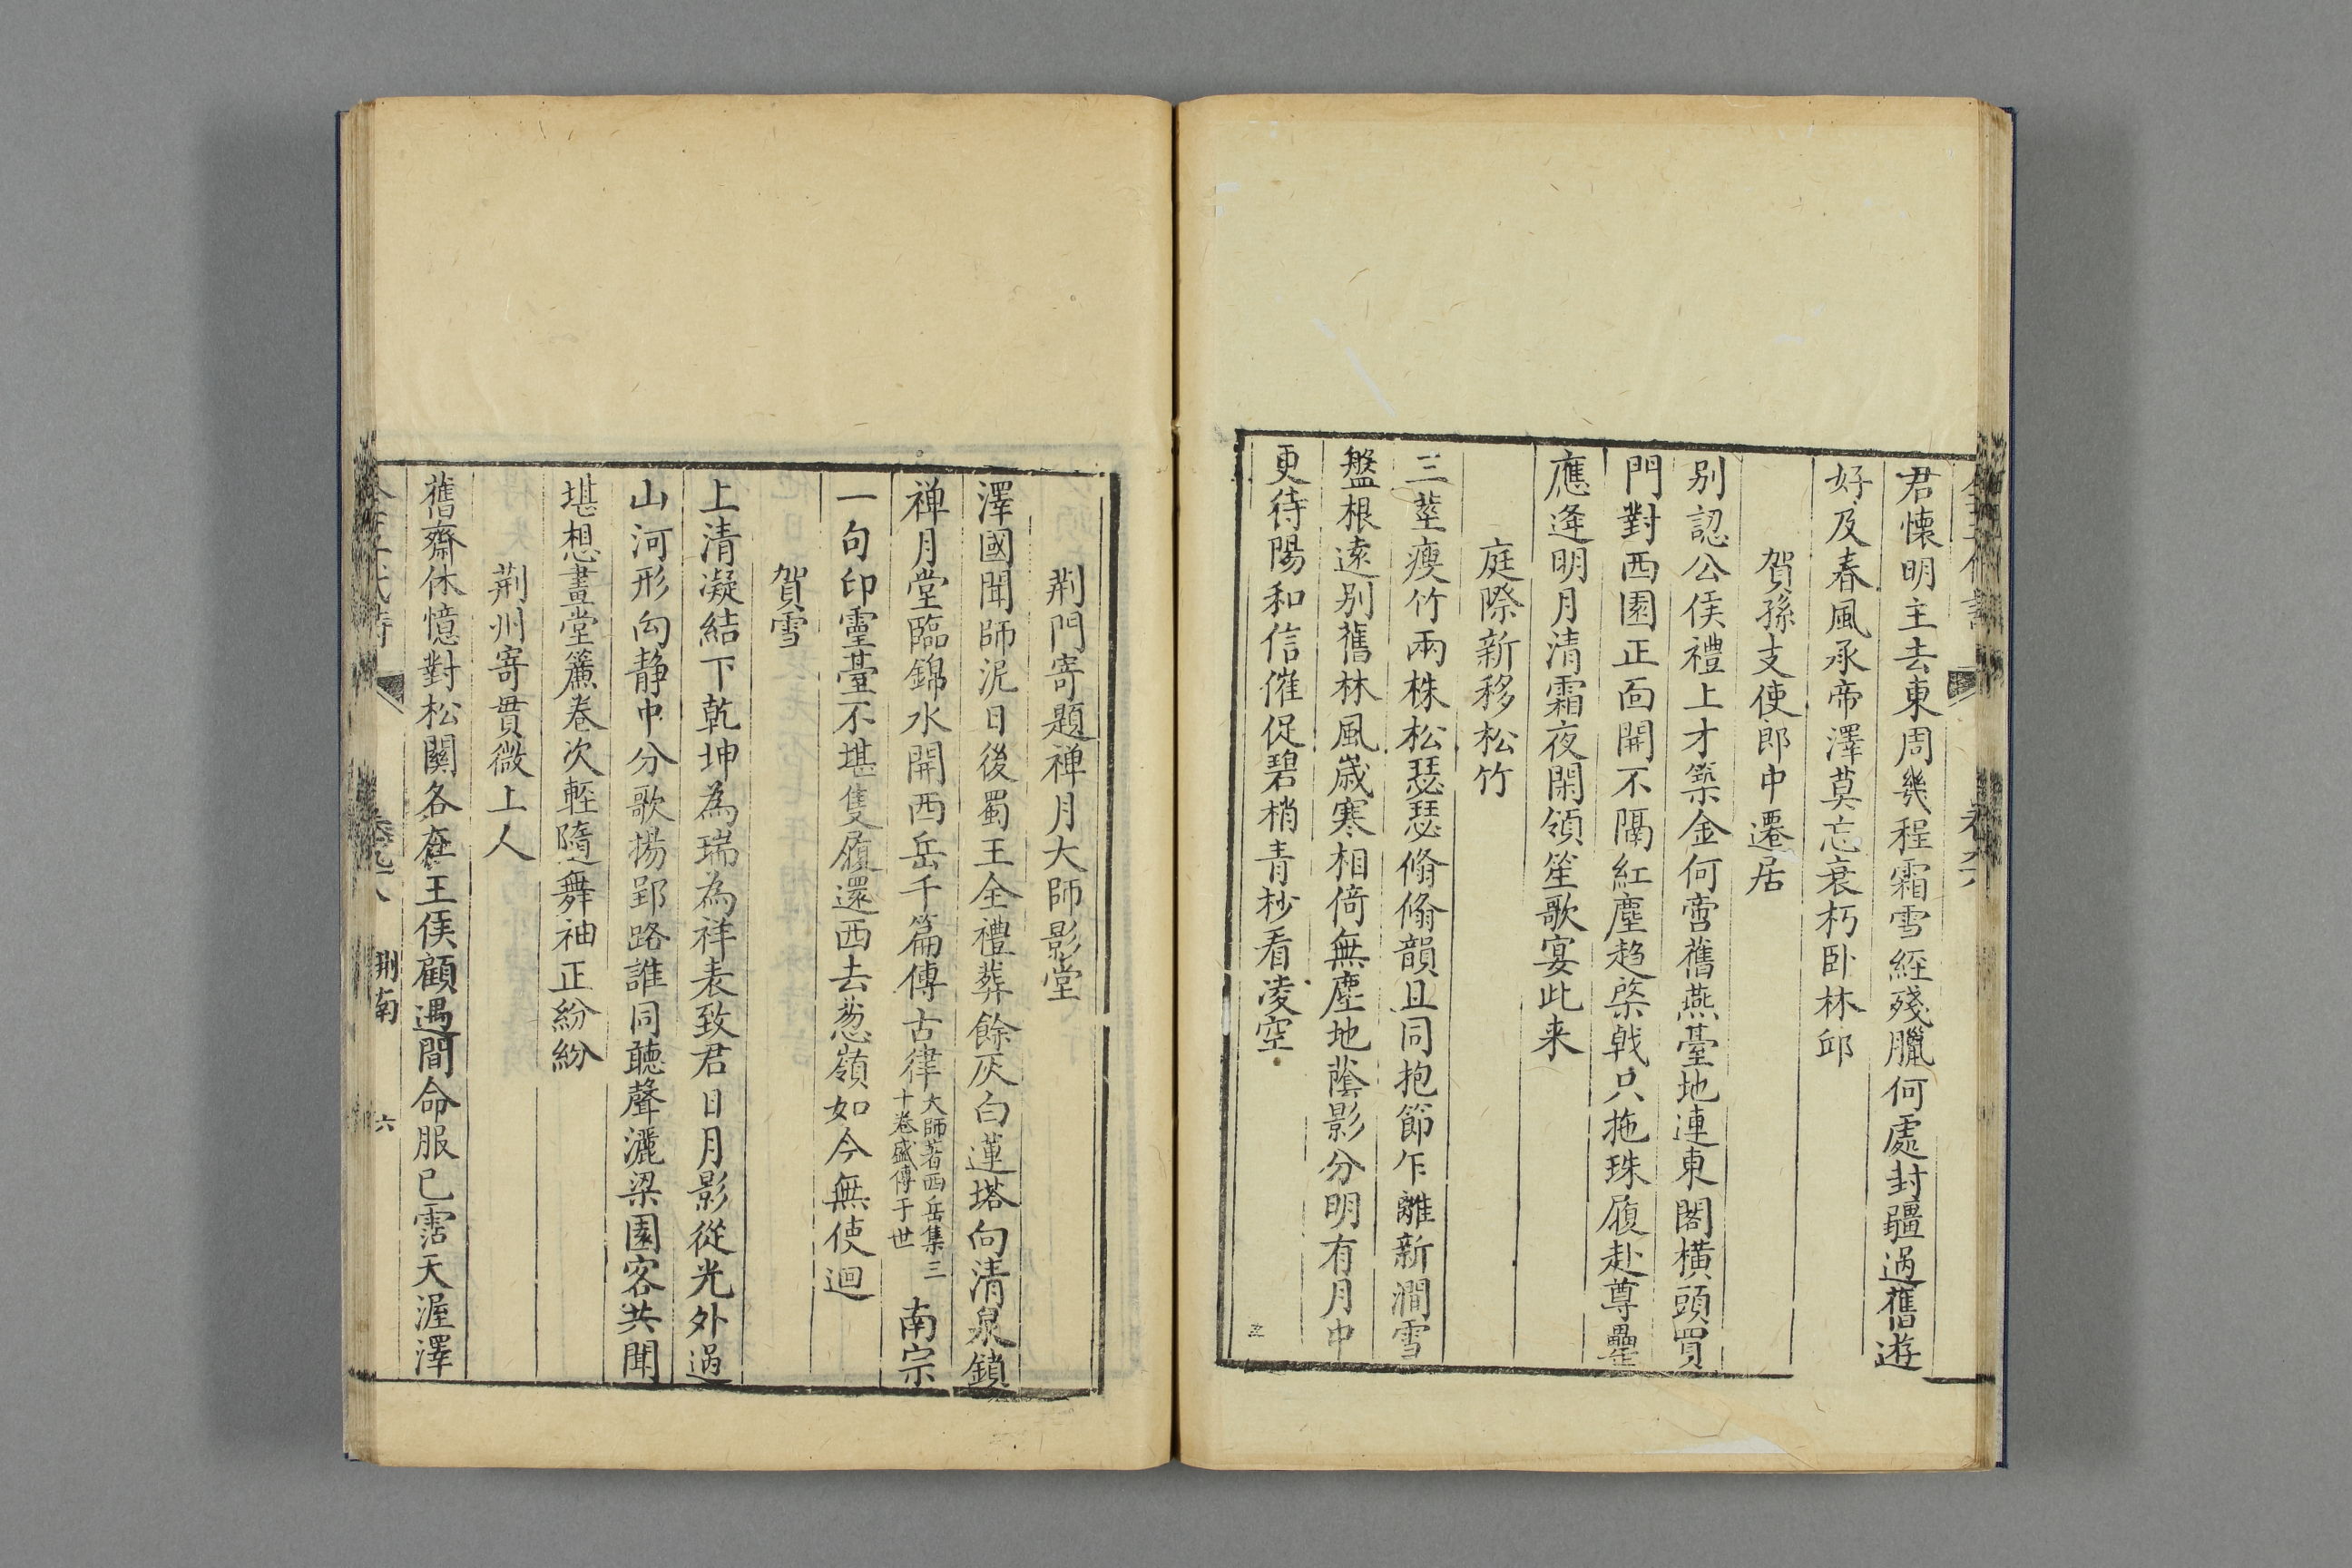 君懷明主去東周幾程霜雪經殘臘何處封疆過舊遊
好及春風承帝澤莫忘衰朽卧林邱
賀孫支使郎中遷居
别認公侯禮上才築金何啻舊燕臺地連東閣橫頭買
門對西園正面開不隔紅塵趋棨戟只拖珠履赴尊罍
應逢明月清霜夜閑領笙歌宴此来
庭際新移松竹
三莖瘦竹兩株松瑟瑟翛翛韻且同抱節乍離新澗雪
盤根遠别舊林風歳寒相倚無塵地蔭影分明有月中
更待陽和信催促碧梢青杪看凌空
五
荆門寄題禅月大師影堂
澤國聞師泥日後蜀王全禮葬餘灰白蓮塔向清泉鎖
禅月堂臨錦水開西岳千篇傳古律大師著西岳集三十卷盛傳于世南宗
一句印靈臺不堪隻履還西去葱嶺如今無使迴
賀雪
上清凝結下乾坤為瑞為祥表致君日月影從光外過
山河形向静中分歌揚郢路誰同聴聲灑梁園客共聞
堪想畫堂簾卷次輕隨舞袖正紛紛
荆州寄貫微上人
舊齋休憶對松關各在王侯顧遇間命服已霑天渥澤
荆南
六